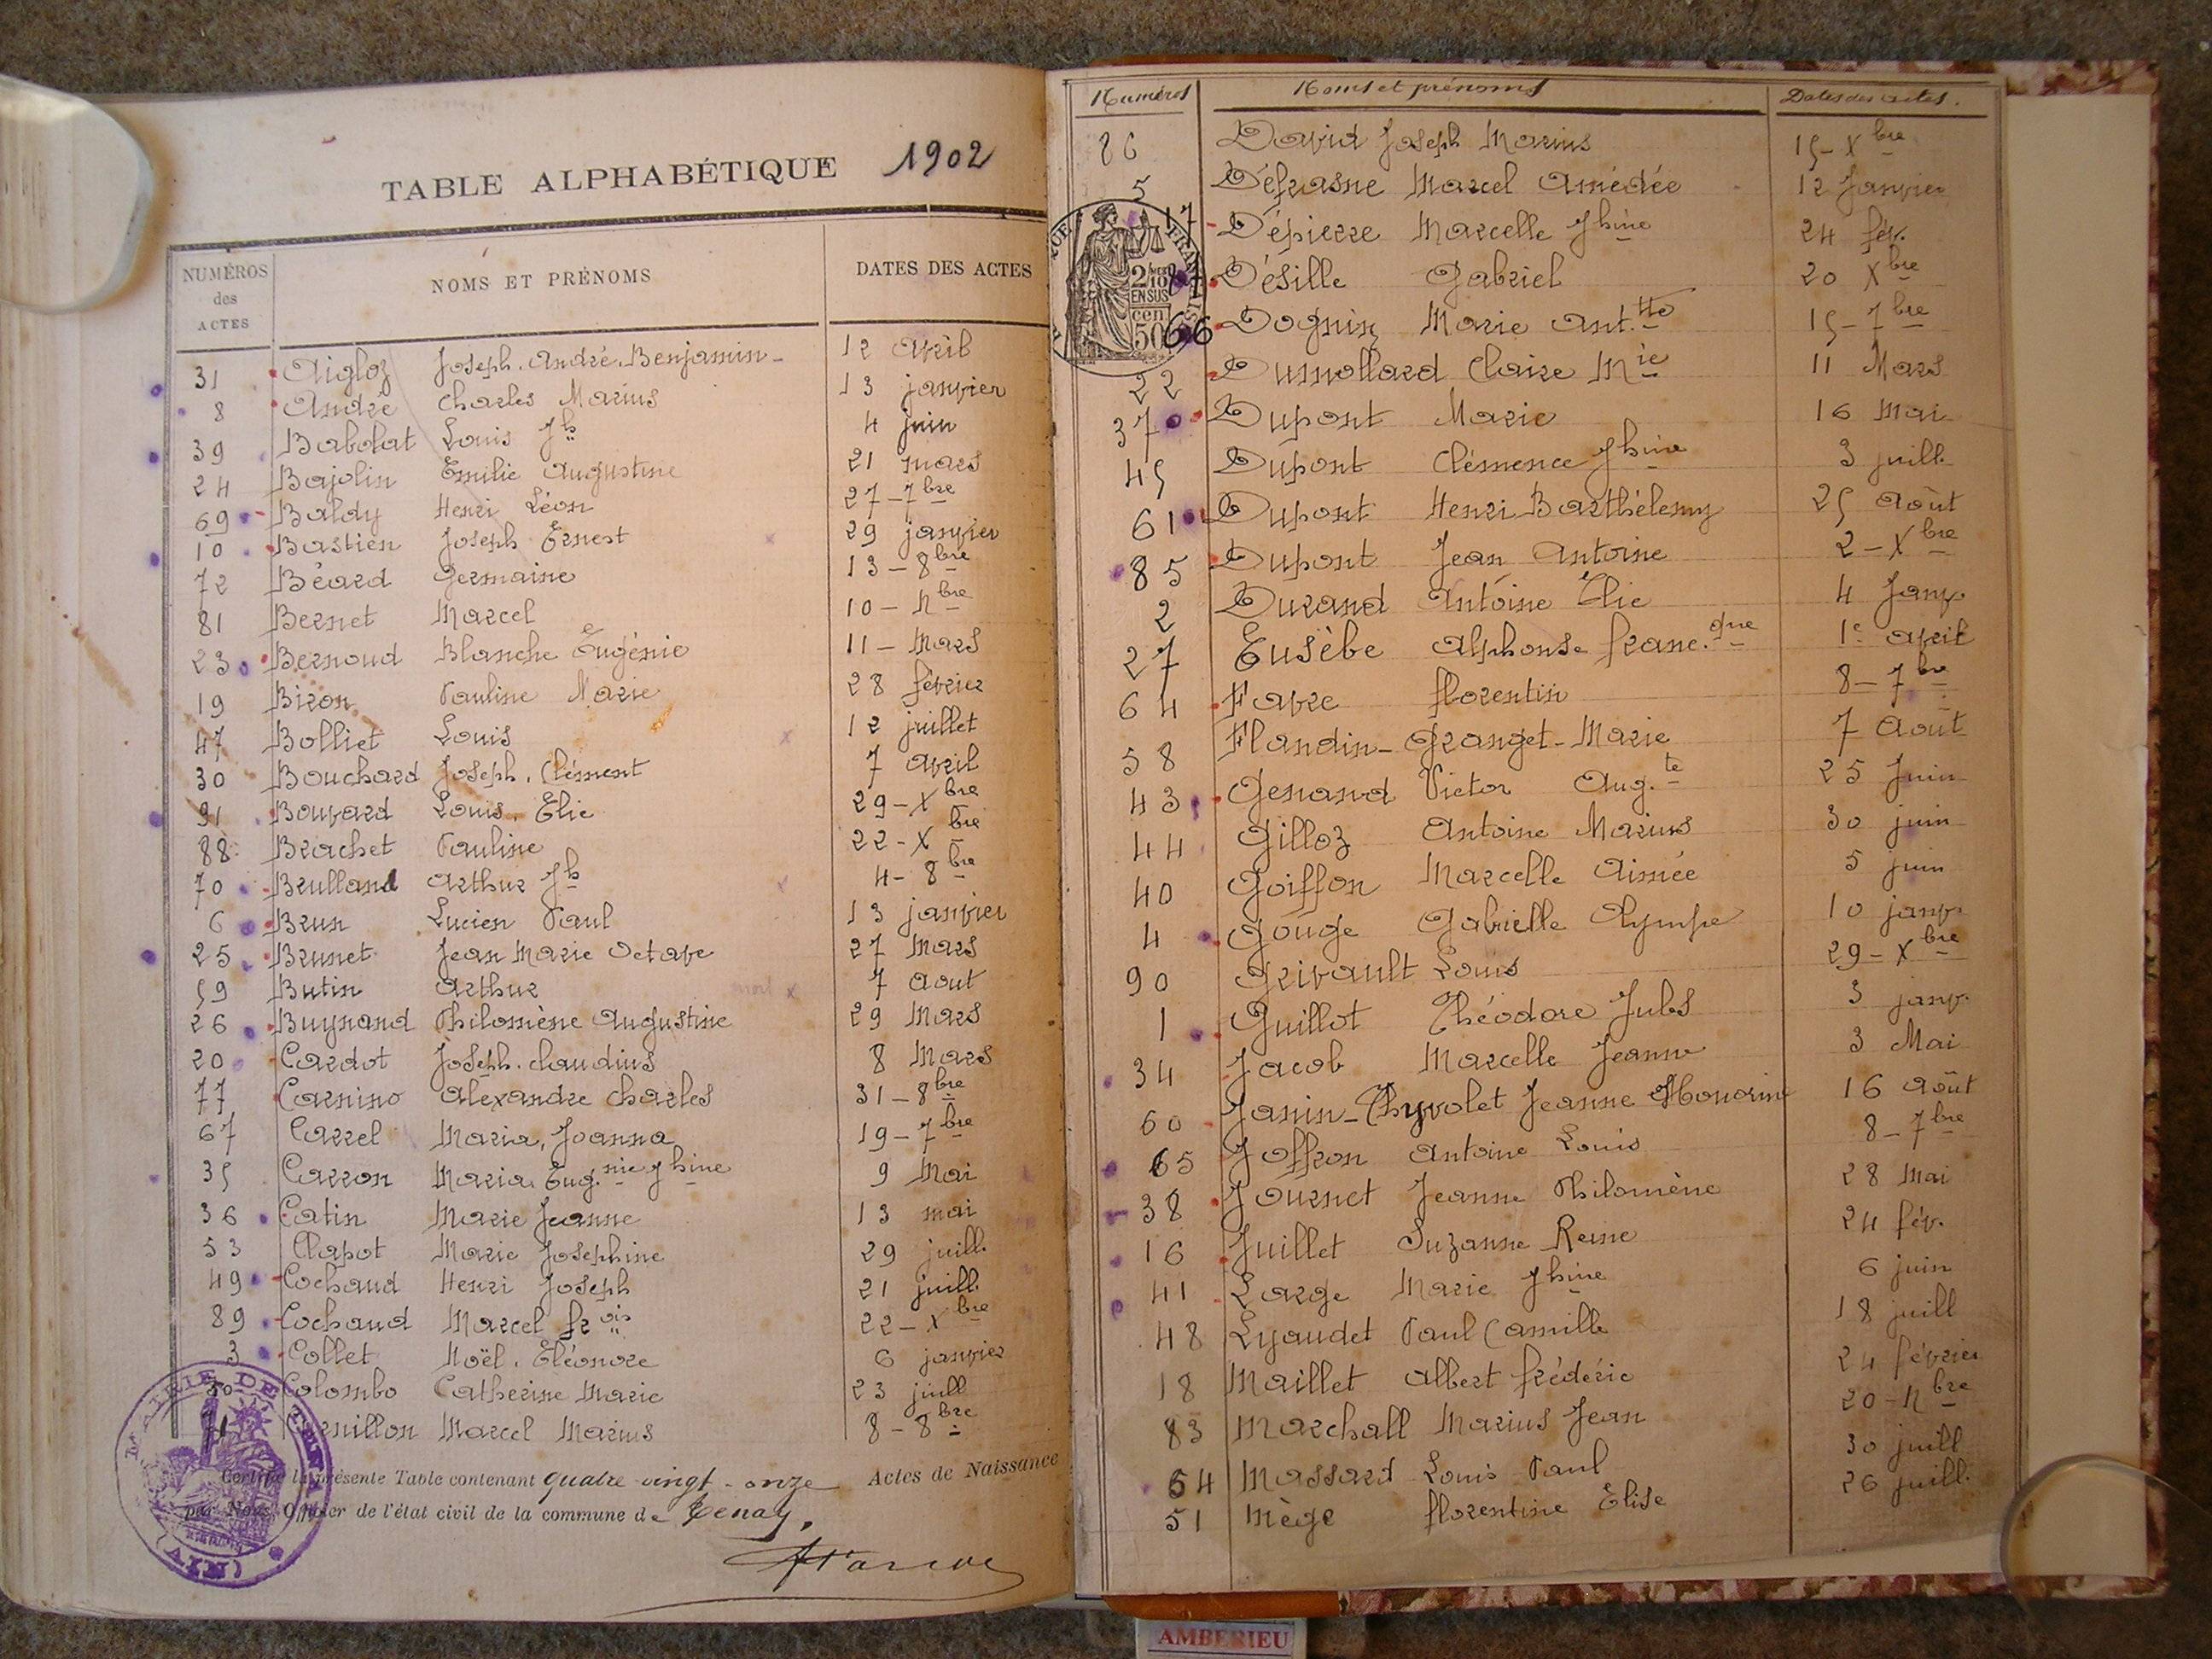 TABLE ALPHABÉTIQUE 1902
NUMÉROS des ACTES NOMS ET PRÉNOMS DATES DES ACTES
31 Aigloz Joseph. André. Benjamin- 12 avril
8 André Charles Marius 13 janvier
39 Babolat Louis Jh 4 juin
24 Bajolin Emilie Augustine 21 mars
69 Baldy Henri Léon 27-7bre
10 Bastien Joseph Ernest 29 janvier
72 Béard Germaine 13-8bre
81 Bernet Marcel 10-Nbre
23 Bernoud Blanche Eugénie 11-Mars
19 Biron Pauline Marie 28 février
47 Bolliet Louis 12 juillet
30 Bouchard Joseph. Clément 7 avril
91 Bouvard Louis. Elie 29-Xbre
88 Brachet Pauline 22-Xbre
70 Brulland Arthur Jh 4-8bre
6 Brun Lucien Paul 13 janvier
25 Brunet Jean Marie Octave 27 Mars
59 Butin Arthur mort x 7 Aout
26 Buynand Philomène Augustine 29 Mars
20 Cardot Joseph. Claudius 8 Mars
77 Carnino Alexandre Charles 31-8bre
67 Carrel Maria, Joanna 19-7bre
35 Carron Maria Eug.nie Jhine 9 Mai
36 Catin Marie Jeanne 13 mai
53 Clapot Marie Josephine 29 juill.
49 Cochaud Henri Joseph 21 juill.
89 Cochaud Marcel frois 22-Xbre
3 Collet Noël. Eléonore 6 janvier
50 Colombo Catherine Marie 23 juill
71 Cornillon Marcel Marius 8-8bre
Certifié la présente Table contenant quatre-vingt-onze Actes de Naissance
par Nous Officier de l'état civil de la commune de Tenay.
MAIRIE DE TENAY (AIN)
Numéros Noms et prénoms Dates des actes.
86 David Joseph Marius 15-Xbre
5 Défrasne Marcel Amédée 12 Janvier
17 Dépierre Marcelle Jhine 24 fév.
87 Désille Gabriel 20 Xbre
66 Dognin Marie Ant.tte 15-7bre
22 Dumollard Claire Mie 11 Mars
37 Dupont Marie 16 Mai
45 Dupont Clémence Jhine 3 juill.
61 Dupont Henri Barthélemy 25 Août
85 Dupont Jean Antoine 2-Xbre
2 Durand Antoine Elie 4 Janv.
27 Eusèbe Alphonse franc.que 1r avril
64 Favre florentin 8-7bre
58 Flandin-Granget-Marie 7 Août
43 Genand Victor Aug.te 25 Juin
44 Gilloz Antoine Marius 30 juin
40 Goiffon Marcelle Aimée 5 juin
4 Gouge Gabrielle Olympe 10 janv.
90 Grivault Louis 29-Xbre
1 Guillot Théodore Jules 3 janv.
34 Jacob Marcelle Jeanne 3 Mai
60 Janin-Thyvolet Jeanne Honorine 16 Août
65 Joffron Antoine Louis 8-7bre
38 Journet Jeanne Philomène 28 Mai
16 Juillet Suzanne Reine 24 fév.
41 Large Marie Jhine 6 juin
48 Lyaudet Paul Camille 18 juill
18 Maillet Albert frédéric 24 février
83 Marchall Marius Jean 20-Nbre
54 Massard Louis Paul 30 juill
51 Mège florentine Elise 26 juill.
2/10 EN SUS
50 cen
AMBERIEU